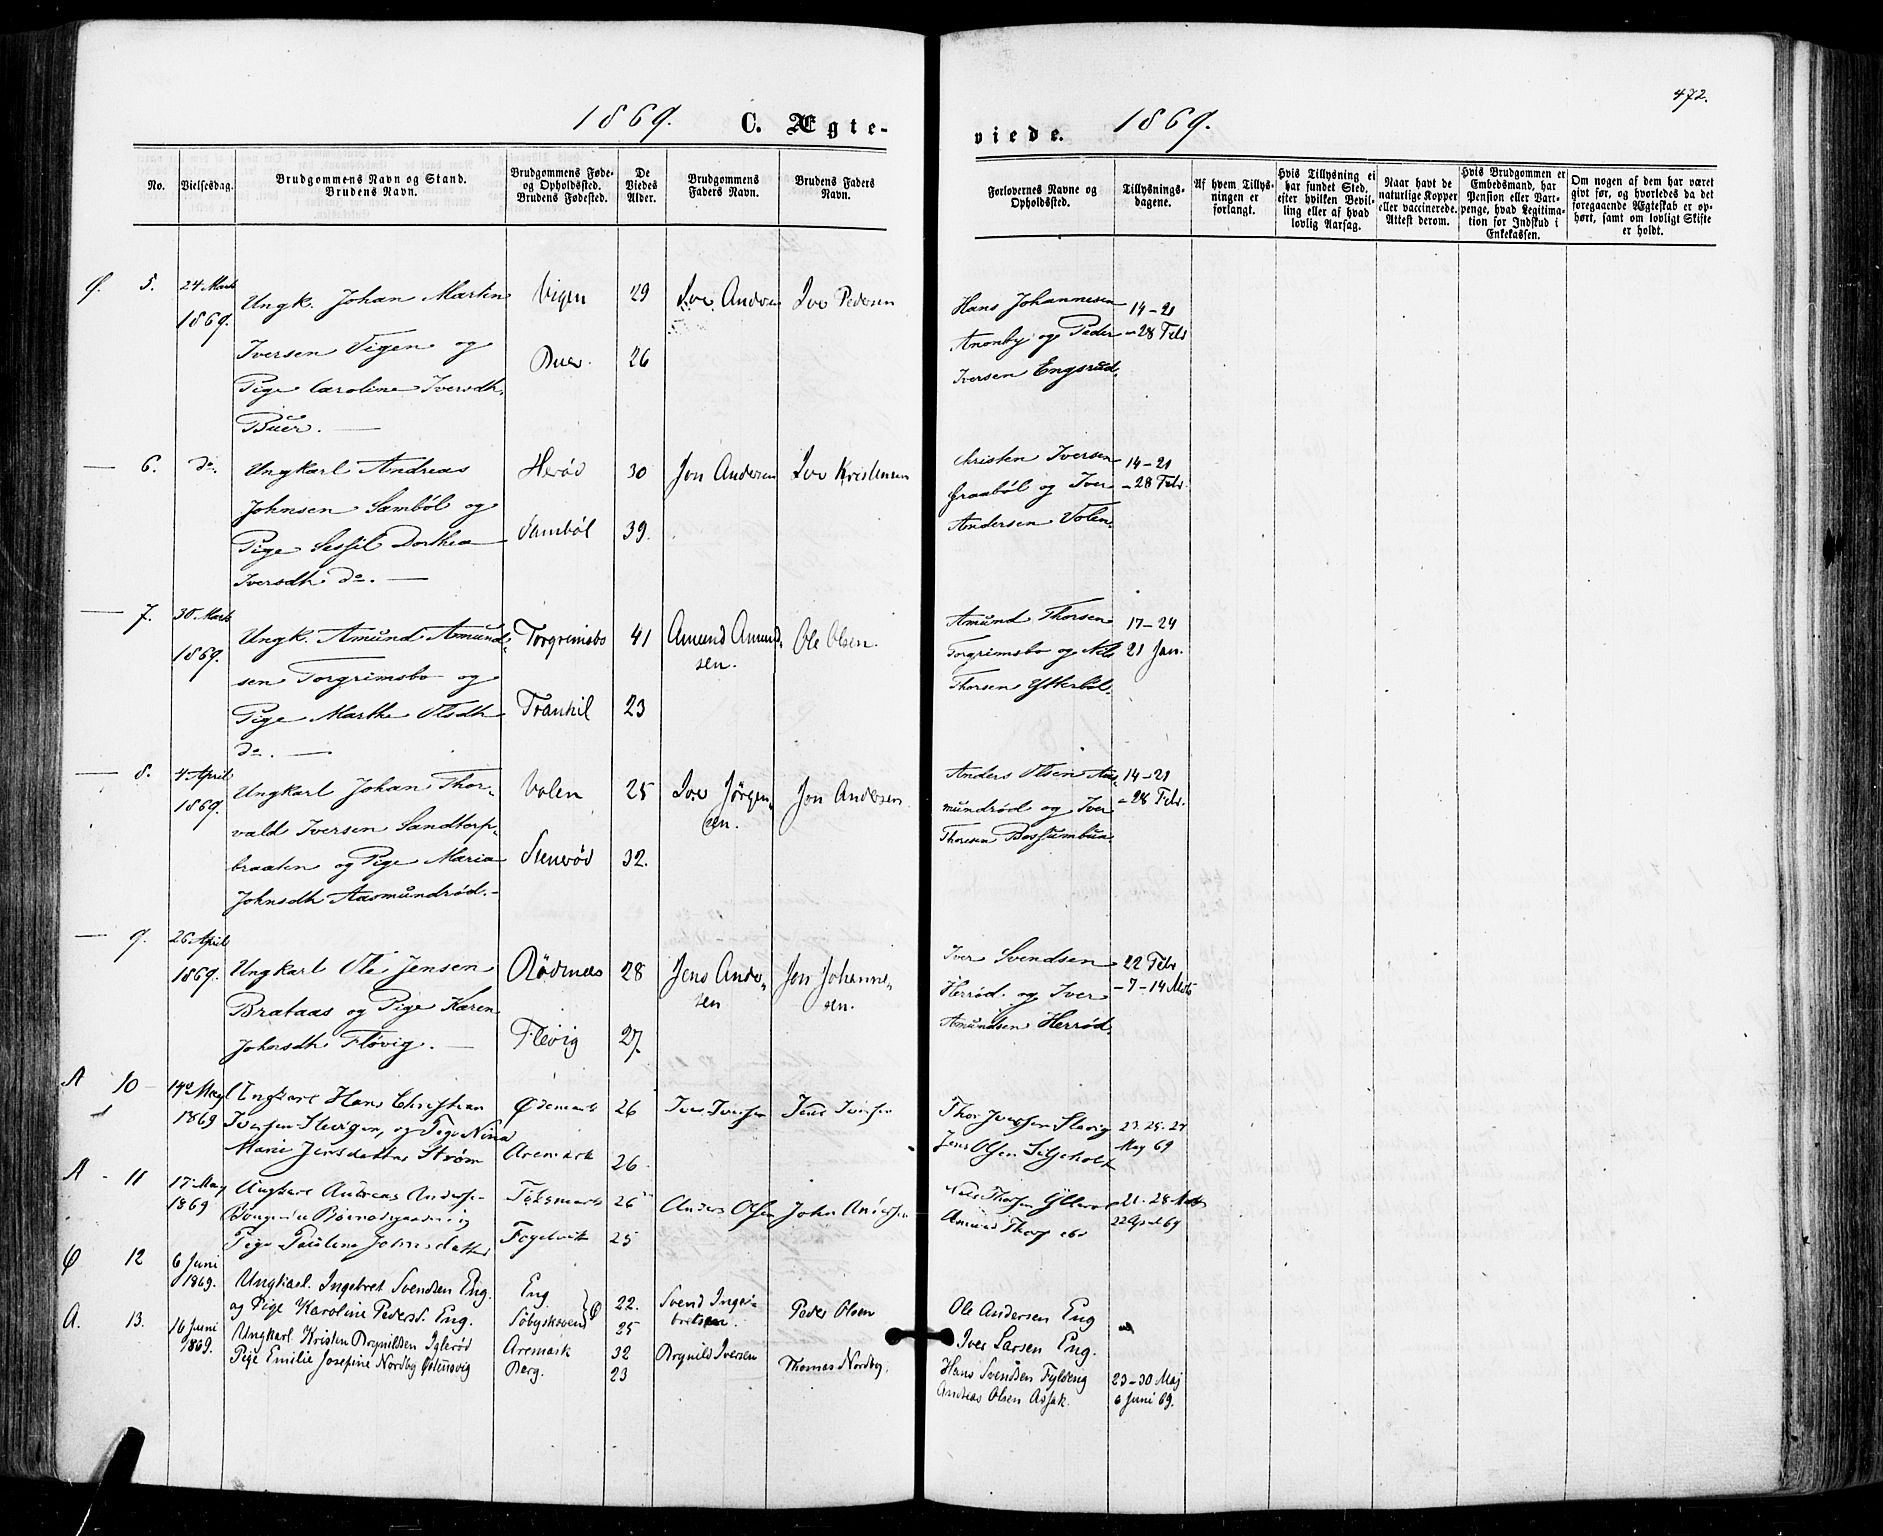 472.
1869. C. Ægte-
viede. 1869.
No.
Vielsesdag.
Brudgommens Navn og Stand.
Brudens Navn.
Brudgommens Føde-
og Opholdssted.
Brudens Fødested.
De
Viedes
Alder.
Brudgommens
Faders Navn.
Brudens Faders
Navn.
Forlovernes Navne og
Opholdssted.
Tillysnings-
dagene.
Af hvem Tillys-
ningen er
forlangt.
Hvis Tillysning ei
har fundet Sted,
efter hvilken Bevil-
ling eller af hvad
lovlig Aarsag.
Naar havt de
naturlige Kopper
eller vaccinerede.
Attest derom.
Hvis Brudgommen er
Embedsmand, har
Pension eller Vart-
penge, hvad Legitima-
tion for Indskud i
Enkekassen.
Om nogen af dem har været
givt før, og hvorledes da det
foregaaende Ægteskab er op-
hørt, samt om lovligt Skifte
er holdt.
Ø. 5. 24 Marts
1869.
Ungk. Johan Martin
Iversen Vigen og
Pige Caroline Iversdh
Buer. —
Vigen 29
Buer. 26
Iver Andersen
Iver Pedersen
Hans Johannesen
Anonby og Peder
Iversen Engsrud.
14-21
-28 Febr
— 6. do.
Ungkarl Andreas
Johnsen Sambøl og
Pige Sessil Dorthea
Iversdh do. —
Herød 30
Sambøl 39.
Jon Andersen
Iver Kristensen
Christen Iversen
Graabøl og Iver
Andersen Volen.
14-21
-28 Febr.
— 7. 30 Marts
1869.
Ungk. Amund Amund-
sen Torgrimsbo og
Pige Marthe Olsdh
do. —
Torgrimsbo 41
Tranhil 23
Amund Amund-
sen.
Ole Olsen.
Amund Thorsen
Torgrimsbo og Nils
Thorsen Ytterbøl.
17-24
21 Jan.
— 8. 4 April
1869.
Ungkarl Johan Thor-
vald Iversen Sandtorp-
braaten og Pige Maria
Johnsdh Aasmundrød.-
Volen 25
Stenrød 32.
Iver Jørgen-
sen.
Jon Andersen
Anders Olsen Aas-
mundrød og Iver
Thoresen Bossumbua.
14-21
-28 Febr.
— 9. 26 April
1869.
Ungkarl Ole Jensen
Brataas og Pige Karen
Johnsdh Fløvig. —
Rødnæs 28
Fløvig 27.
Jens Ander-
sen
Jon Johanne-
sen.
Iver Svendsen
Herrød. og Iver
Amundsen Herrød.
22 Febr
-7-14 Mts
A 10 14de May
1869
Ungkarl Hans Christian
Iversen og Pige Nina
Marie Jensdatter Strøm
Ødemark 26
Aremark 26.
Iver Iversen
Jens Iversen
Thor Iversen
Jens Olsen
23. 25. 27
May 69
A - 11 17 May
1869
Ungkarl Andreas Anderse
Pige Pauline Johnsdatter
26
25
Anders Olsen
John Andersen
Nils Thorsen
Amund Thors
21. 28 Mts
22 April 69
Ø 12 6 Juni
1869.
Ungkarl. Ingebret Svendsen Eng.
og Pige Karoline Peders. Eng.
Eng 22.
Søbyskoven } Ø 25
Svend Inge-
bretsen.
Peder Olsen
Ole Andersen Eng
Iver Larsen Eng.
A. 13. 16 Juni
1869.
Ungkarl. Kristen Brynildsen Iglerød
Pige Emilie Josefine Nordby Østensvig
Aremark 32
Berg. 23
Brynild Iversen
Thomas Nordby.
Hans Svendsen Fyldeng
Andreas Olsen Asjak.
23-30 Maj
6 Juni 69.